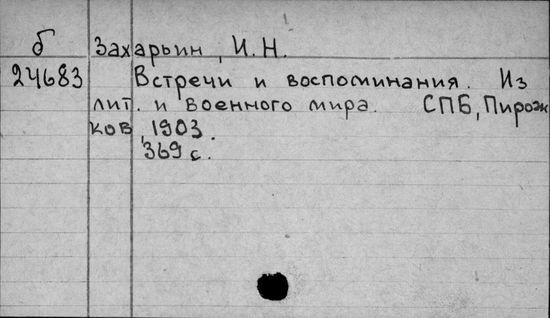 б Захарьин, И.Н.
24683 Встречи и воспоминания. Из
лит. и военного мира. СПБ, Пирож
ков, 1903.
369 с.